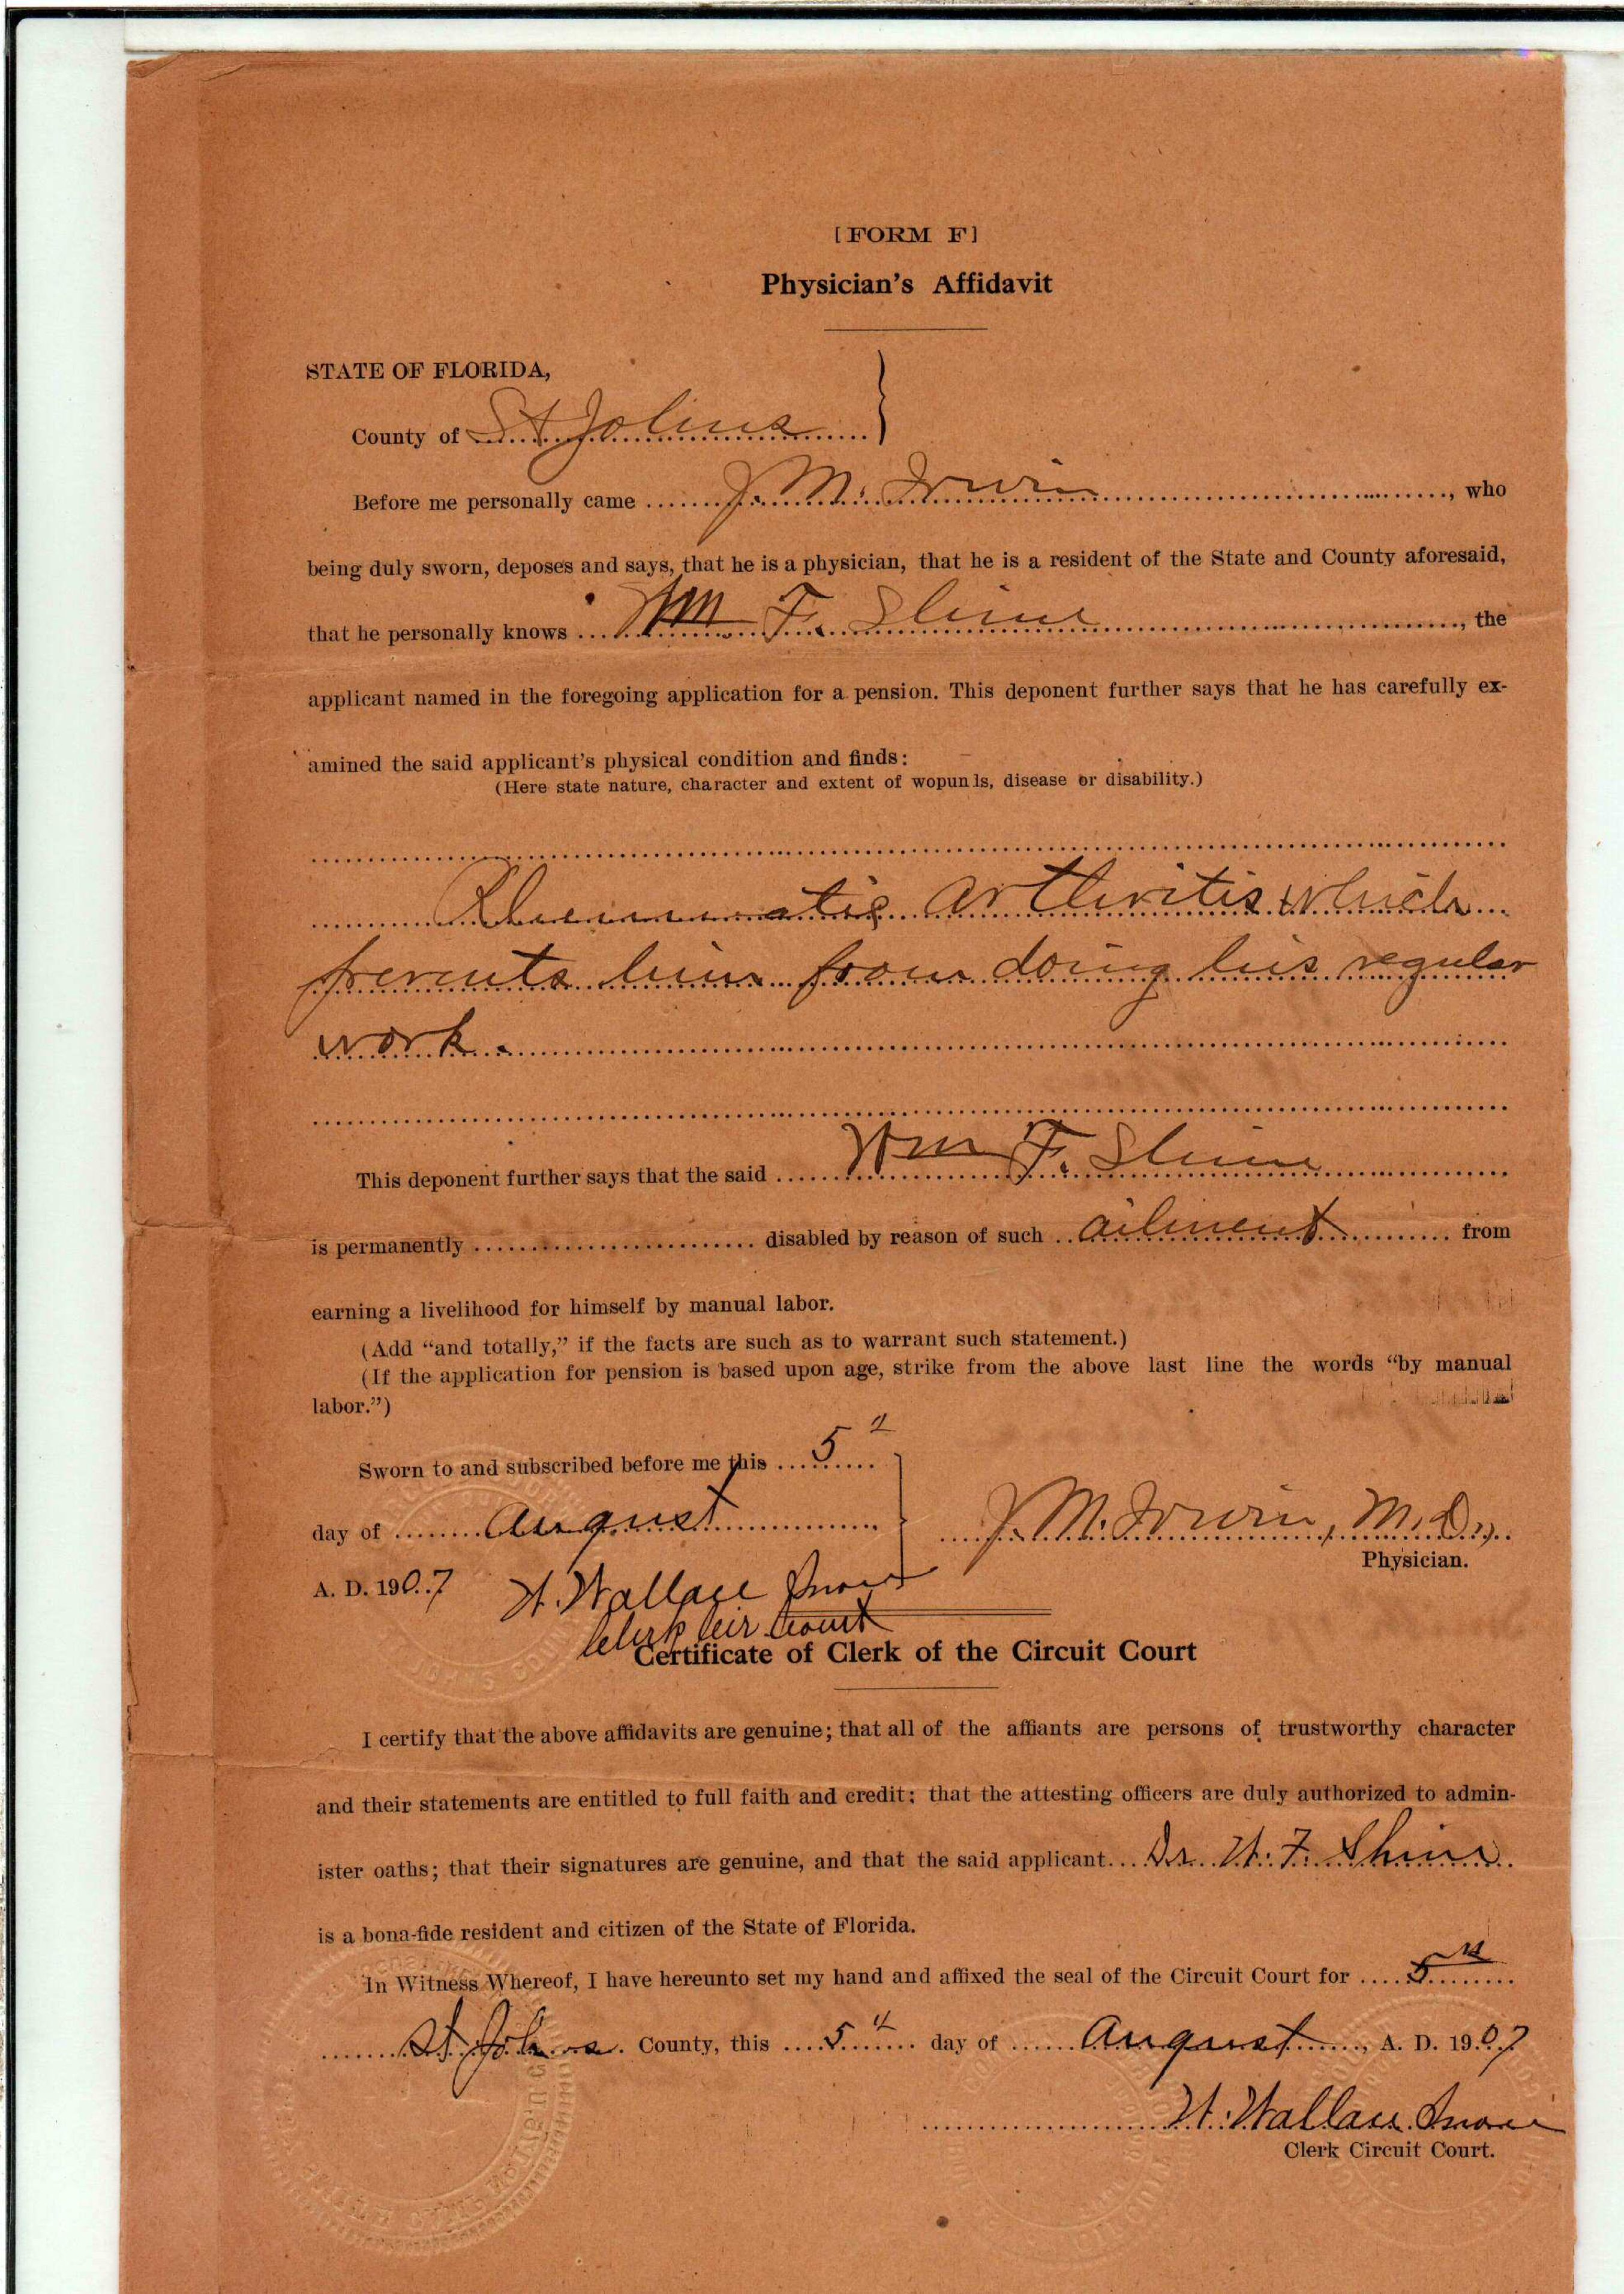 [FORM F]
Physician's Affidavit
STATE OF FLORIDA,
County of St Johns
Before me personally came J. M. Irwin, who
being duly sworn, deposes and says, that he is a physician, that he is a resident of the State and County aforesaid,
that he personally knows Wm F. Shine, the
applicant named in the foregoing application for a pension. This deponent further says that he has carefully ex-
amined the said applicant's physical condition and finds:
(Here state nature, character and extent of wopunls, disease or disability.)
Rheumatic Arthritis which
prevents him from doing his regular
work.
This deponent further says that the said Wm F. Shine
is permanently disabled by reason of such ailment from
earning a livelihood for himself by manual labor.
(Add "and totally," if the facts are such as to warrant such statement.)
(If the application for pension is based upon age, strike from the above last line the words "by manual
labor.")
Sworn to and subscribed before me this 5"
day of August
J. M. Irwin, M.D.,
Physician.
A. D. 1907 W. Wallace Snow
Clerk Cir Court
Certificate of Clerk of the Circuit Court
I certify that the above affidavits are genuine; that all of the affiants are persons of trustworthy character
and their statements are entitled to full faith and credit; that the attesting officers are duly authorized to admin-
ister oaths; that their signatures are genuine, and that the said applicant Dr. W. F. Shine
is a bona-fide resident and citizen of the State of Florida.
In Witness Whereof, I have hereunto set my hand and affixed the seal of the Circuit Court for 5"
St Johns County, this 5" day of August, A. D. 1907
W. Wallace Snow
Clerk Circuit Court.